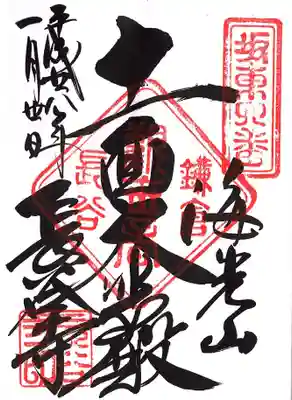 坂東四番
海光山
鎌倉
十一面大悲殿
長谷
平成廿八年
一月
長谷寺